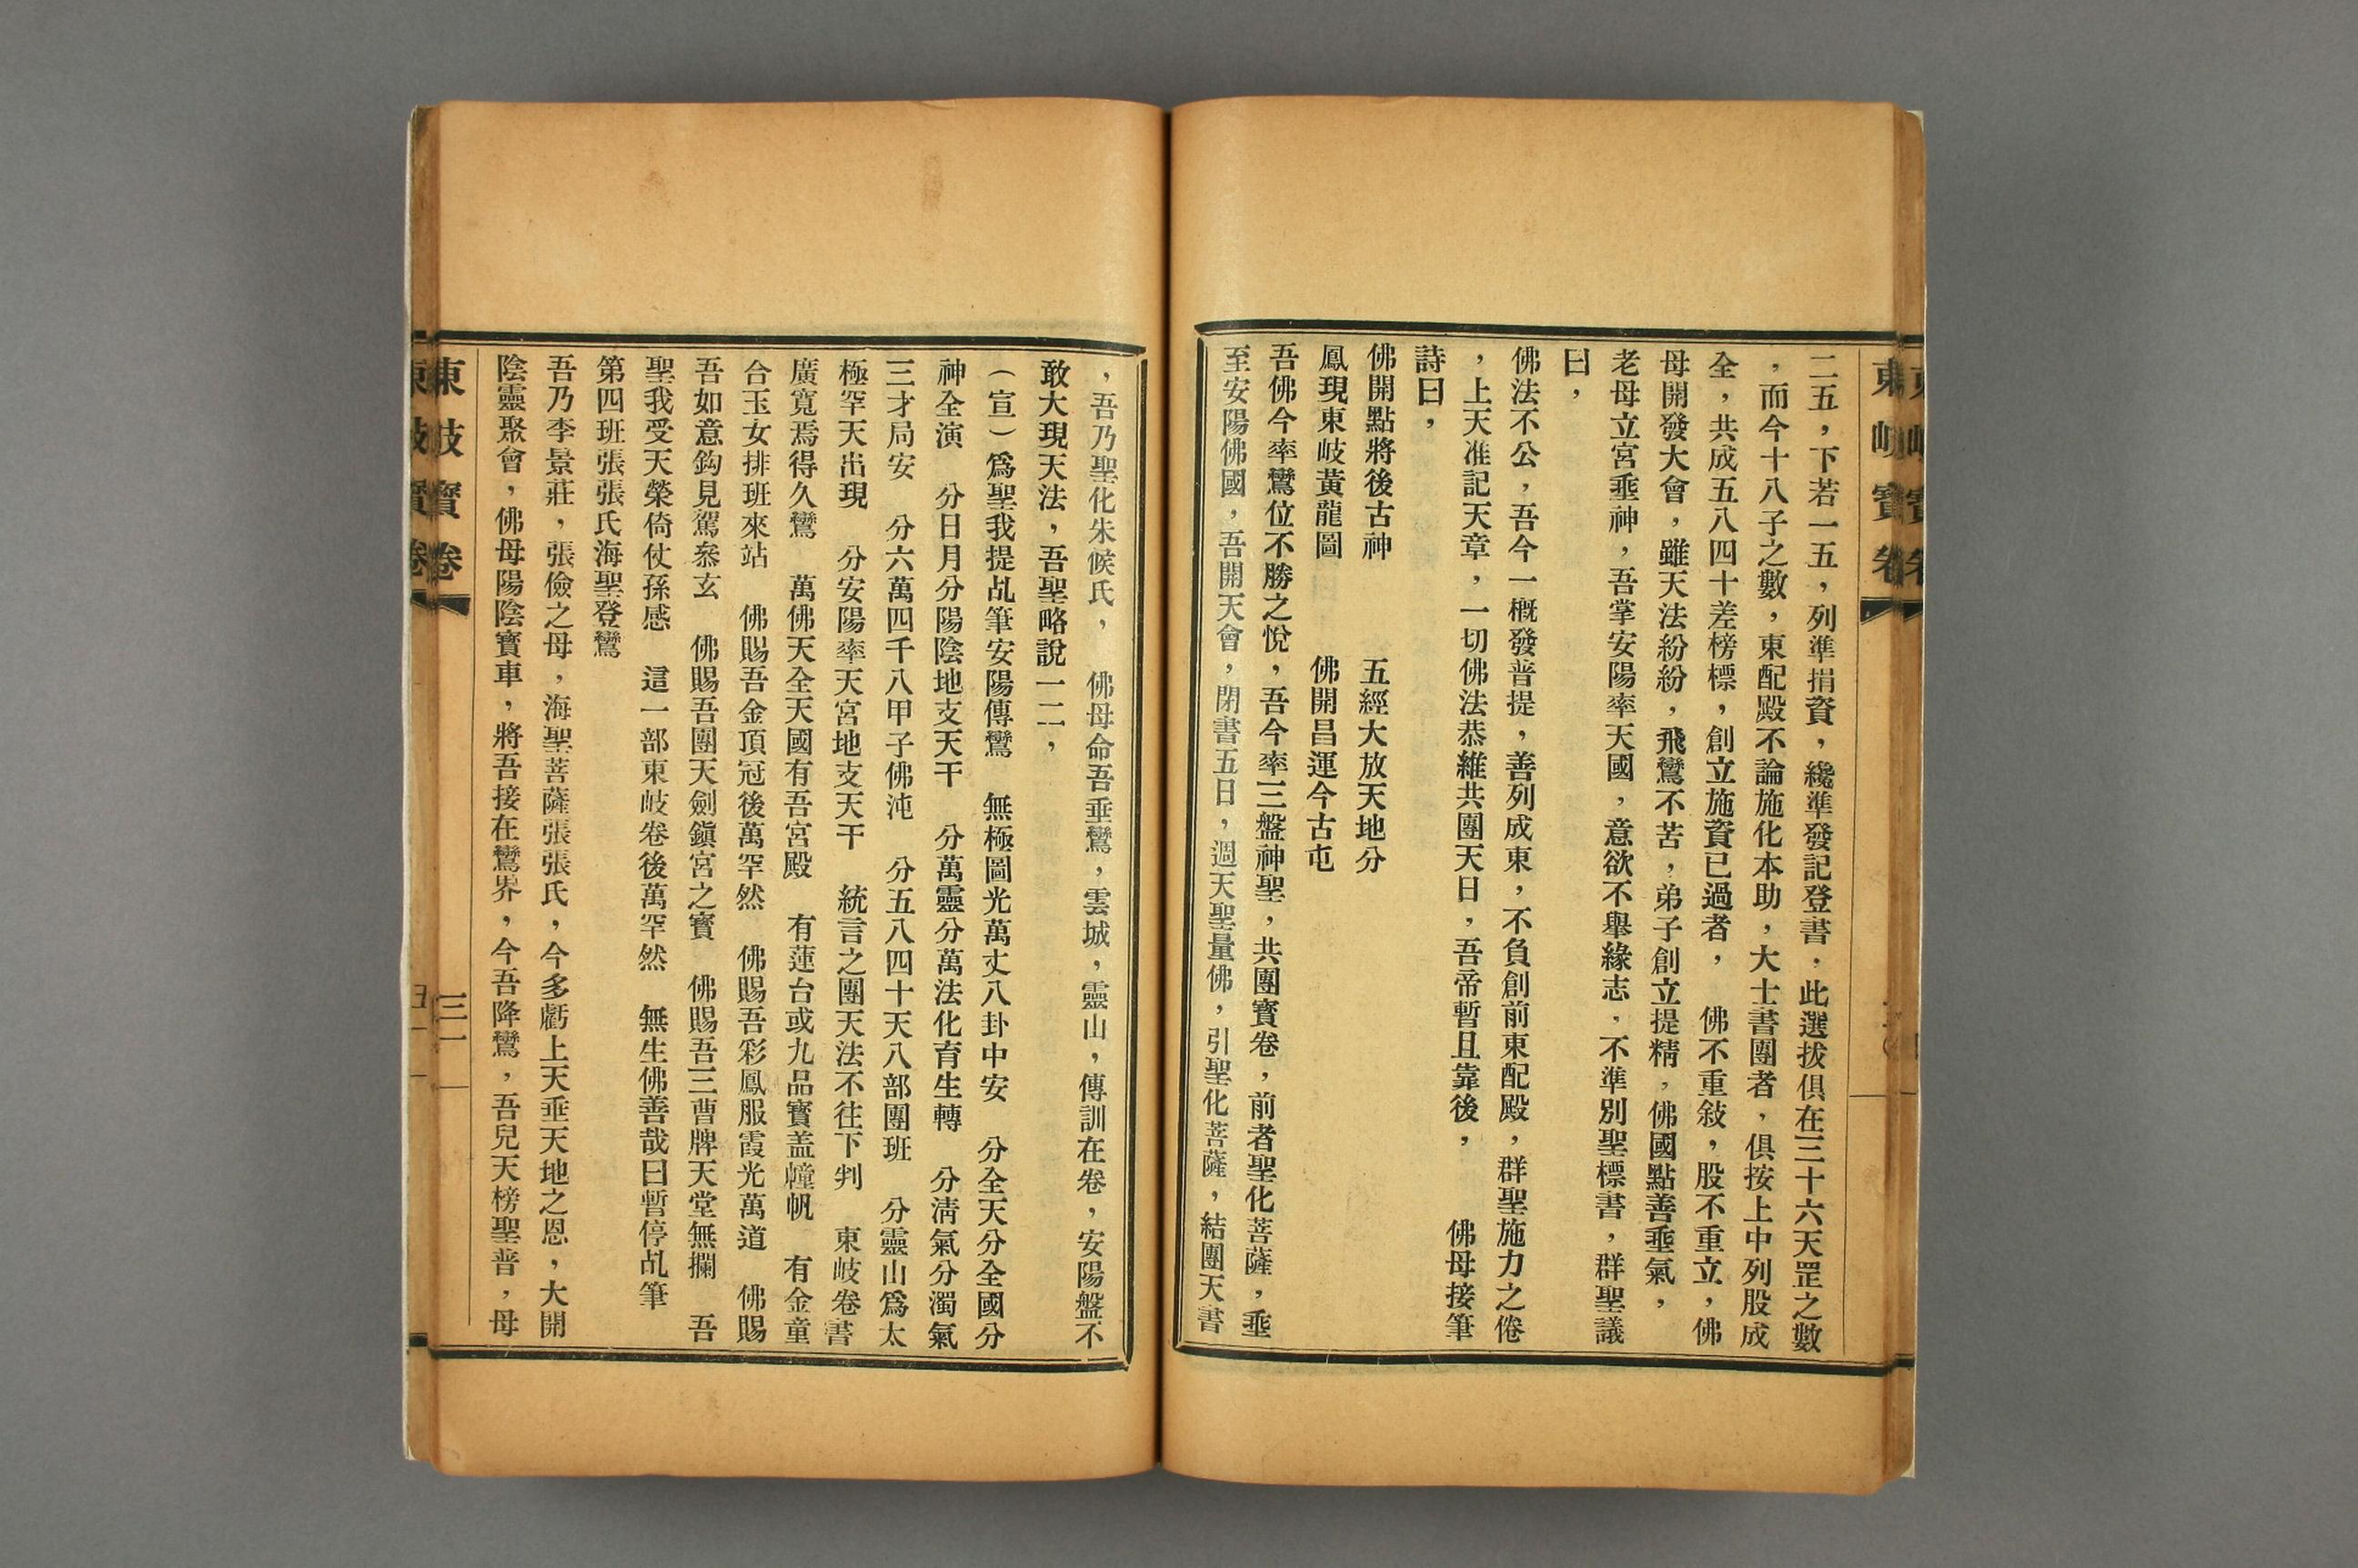 東岐寶卷
二五，下若一五，列準捐資，纔準發記登書，此選拔俱在三十六天罡之數
，而今十八子之數，東配殿不論施化本助，大士書團者，俱按上中列股成
全，共成五八四十差榜標，創立施資已過者，　佛不重敍，股不重立，佛
母開發大會，雖天法紛紛，飛鸞不苦，弟子創立提精，佛國點善埀氣，
老母立宮埀神，吾掌安陽率天國，意欲不舉緣志，不準別聖標書，群聖議
曰，
佛法不公，吾今一概發普提，善列成東，不負創前東配殿，群聖施力之倦
，上天准記天章，一切佛法恭維共團天日，吾帝暫且靠後，　　佛母接筆
詩曰，
佛開點將後古神　　　五經大放天地分
鳳現東岐黃龍圖　　　佛開昌運今古屯
吾佛今率鸞位不勝之悅，吾今率三盤神聖，共團寶卷，前者聖化菩薩，埀
至安陽佛國，吾開天會，閉書五日，週天聖量佛，引聖化菩薩，結團天書
，吾乃聖化朱候氏，　佛母命吾垂鸞，雲城，靈山，傳訓在卷，安陽盤不
敢大現天法，吾聖略說一二，
（宣）爲聖我提乩筆安陽傳鸞　無極圖光萬丈八卦中安　分全天分全國分
神全演　分日月分陽陰地支天干　分萬靈分萬法化育生轉　分淸氣分濁氣
三才局安　分六萬四千八甲子佛沌　分五八四十天八部團班　分靈山爲太
極罕天出現　分安陽率天宮地支天干　統言之團天法不往下判　東岐卷書
廣寬焉得久鸞　萬佛天全天國有吾宮殿　有蓮台或九品寶盖幢帆　有金童
合玉女排班來站　佛賜吾金頂冠後萬罕然　佛賜吾彩鳳服霞光萬道　佛賜
吾如意鈎見駕叅玄　佛賜吾團天劍鎭宮之寶　佛賜吾三曹牌天堂無攔　吾
聖我受天榮倚仗孫感　這一部東岐卷後萬罕然　無生佛善哉曰暫停乩筆
第四班張張氏海聖登鸞
吾乃李景莊，張儉之母，海聖菩薩張張氏，今多虧上天垂天地之恩，大開
陰靈聚會，佛母陽陰寶車，將吾接在鸞界，今吾降鸞，吾兒天榜聖普，母
東岐寶卷
三一